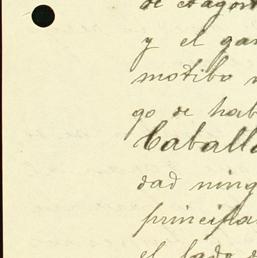 de Agost
y el gan
motibo
go de hab
Caball
dad ning
principa
el lado d